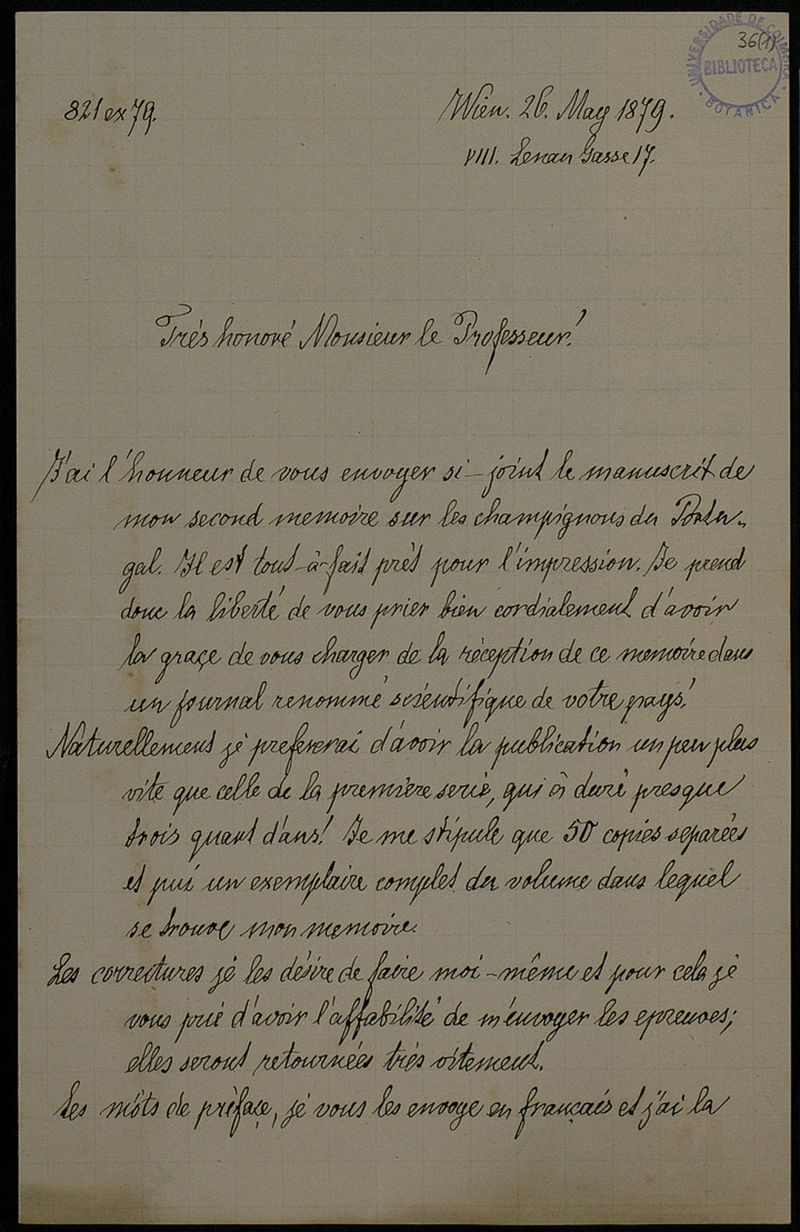 36(1)
UNIVERSIDADE DE COIMBRA
BIBLIOTECA
BOTANICA
821 ex 79.
Wien. 26. May 1879.
VIII. Lenau Gasse 17.
Très honoré Monsieur le Professeur!
J'ai l'honneur de vous envoyer si-joint le manuscrit de
mon second memoire sur les champignons du Portu-
gal. Il est tout-à-fait prèt pour l'impression. Je prend
donc la liberté de vous prier bien cordialement d'avoir
la graçe de vous charger de la réception de ce memoire dans
un journal renommé scientifique de votre pays!
Naturellement jé prefererai d'avoir la publication un peu plus
vite que celle de la premiere serie, qui à duré presque
trois quart d'ans! Je me stipule que 50 copies separées
et pui un exemplaire complet du volume dans lequel
se trouve mon memoire.
Les correctures jé les désire de faire moi-même et pour cela jé
vous prié d'avoir l'affabilité de m'envoyer les epreuves;
elles seront retournées trés vitement.
Les môts de préfaçe, jé vous les envoye en français et j'ai la